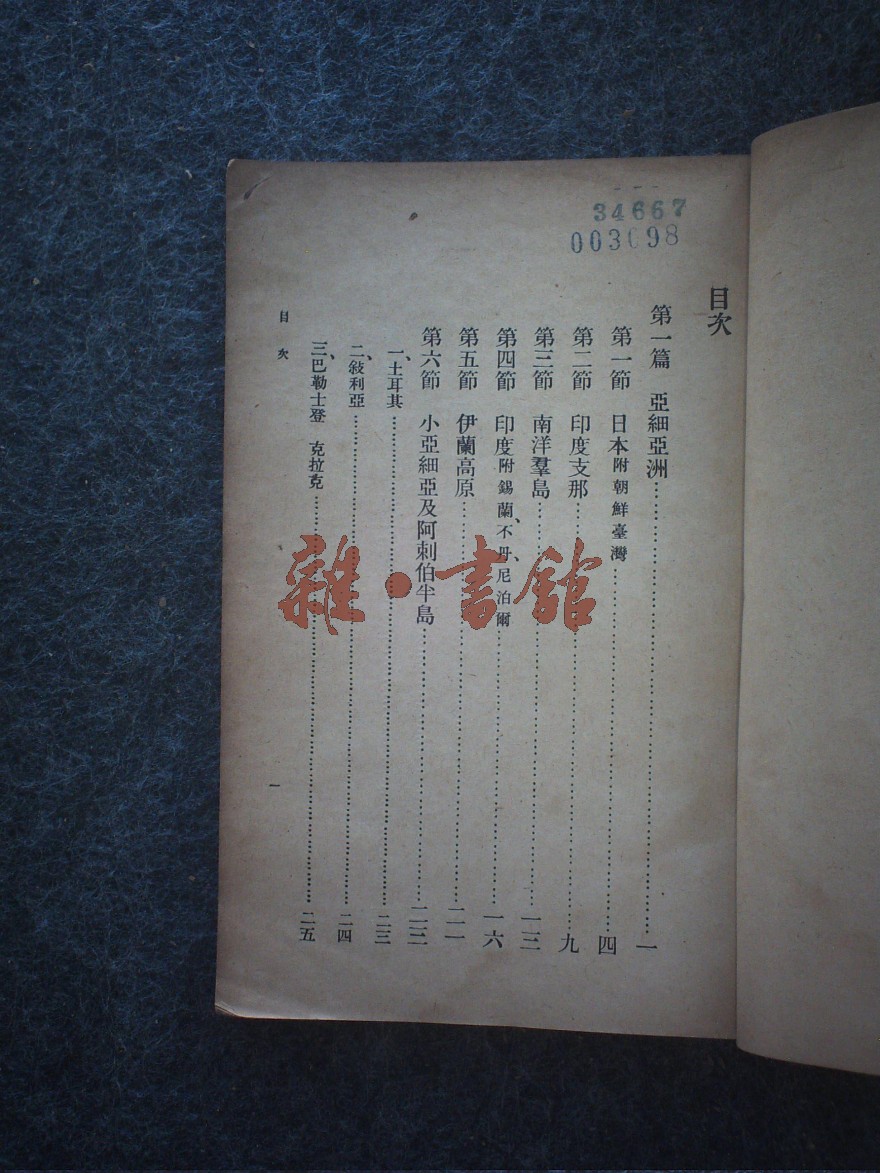 34667
003098
目次
第一篇 亞細亞洲……一
第一節 日本附朝鮮臺灣……四
第二節 印度支那……九
第三節 南洋羣島……一三
第四節 印度附錫蘭、不丹、尼泊爾……一六
第五節 伊蘭高原……二一
第六節 小亞細亞及阿剌伯半島……二三
一、土耳其……二三
二、敍利亞……二四
三、巴勒士登 克拉克……二五
目次
一
雜·書館